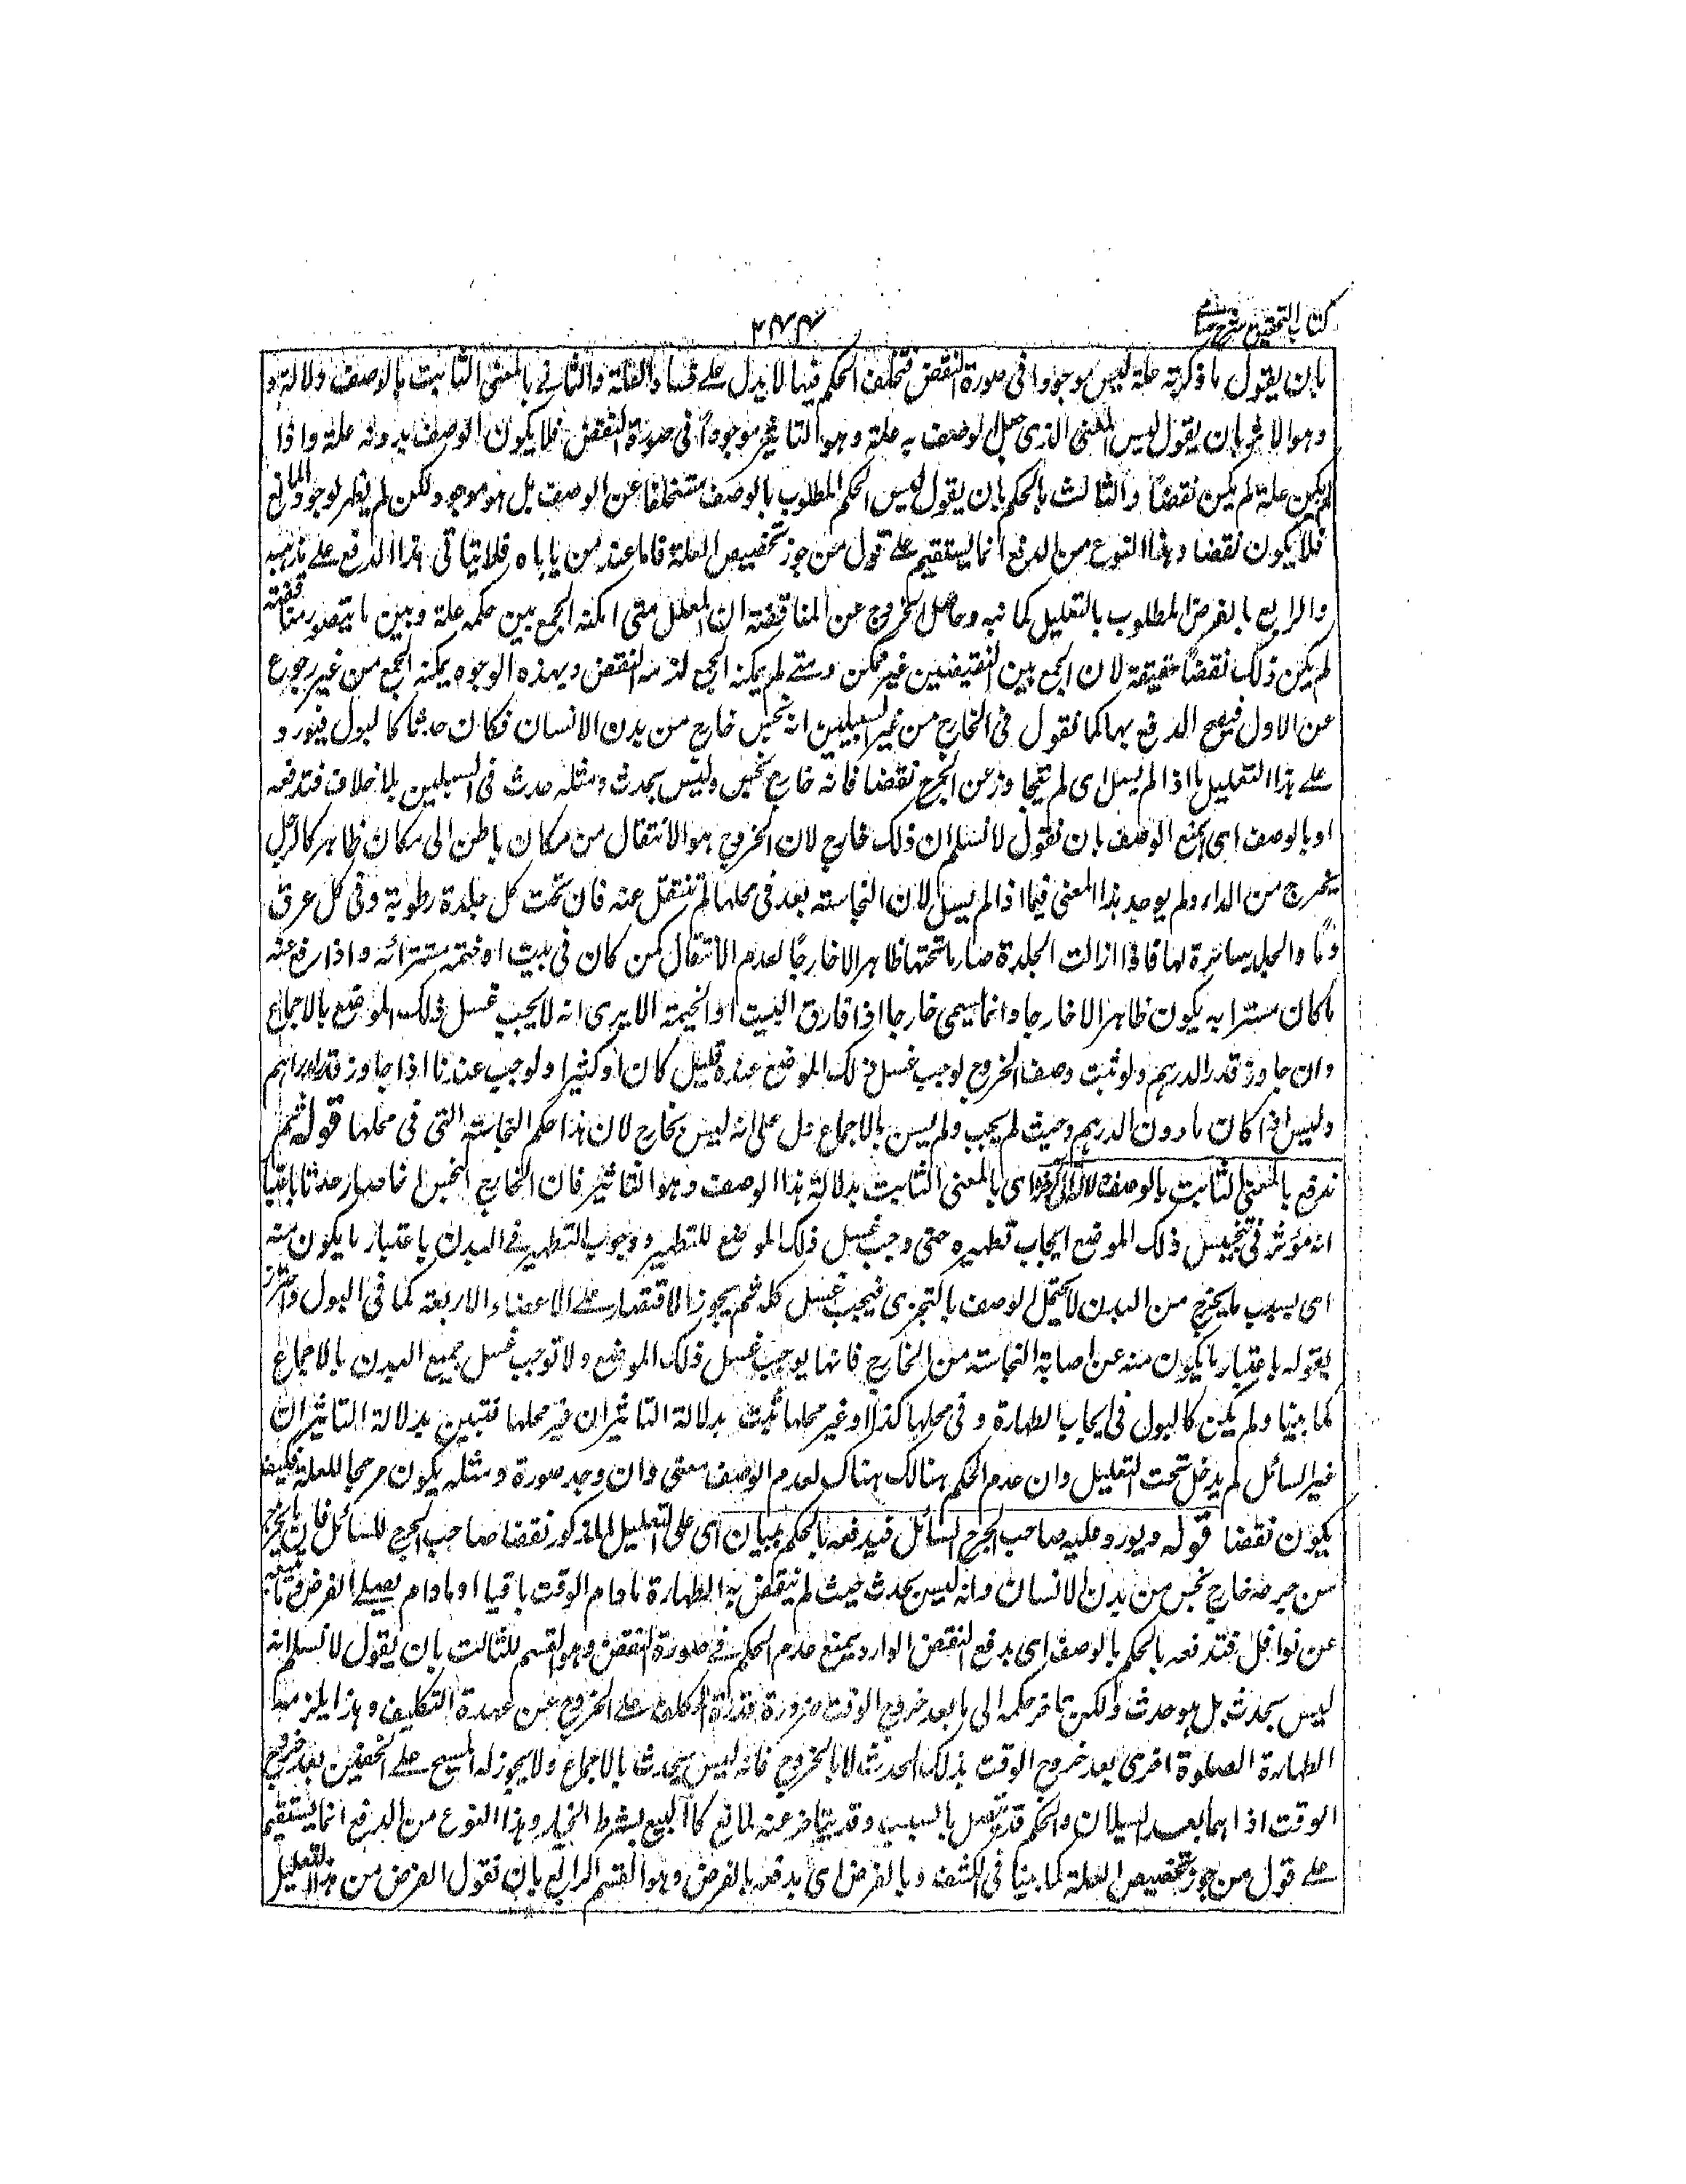 كتاب التحقيق شرح حسامي
٢٤٤
بان يقول ما ذكرته علة ليس موجودا فى صورة النقض فتخلف الحكم فيها لا يدل على فساد العلة والثانى بالمعنى الثابت بالوصف دلالة و
وهو الاثر بان يقول ليس المعنى الذى جعل الوصف به علة وهو التاثير موجوداً فى صورة النقض فلا يكون الوصف بدونه علة واذا
لم يكن علة لم يكن نقضاً والثالث بالحكم بان يقول ليس الحكم المطلوب بالوصف متخلفا عن الوصف بل هو موجود ولكن لم يظهر لوجود المانع
فلا يكون نقضا وهذا النوع من الدفع انما يستقيم على قول من جوز تخصيص العلة فاما عند من ياباه فلا يتاتى هذا الدفع على مذهبه
والرابع بالغرض المطلوب بالتعليل كما نبه وحاصل الخروج عن المناقضة ان المعلل متى امكنه الجمع بين حكمه علة وبين ما يتصور مناقضته
لم يكن ذلك نقضاً حقيقة لان الجمع بين النقيضين غير ممكن ومتى لم يمكنه الجمع لزمه النقض وبهذه الوجوه يمكنه الجمع من غير رجوع
عن الاول فيصح الدفع بها كما نقول فى الخارج من غير السبيلين انه نجس خارج من بدن الانسان فكان حدثا كالبول فيورد و
على هذا التعليل ما اذا لم يسل اى لم يتجاوز عن الجرح نقضا فانه خارج نجس وليس بحدث ومثله حدث فى السبيلين بلا خلاف فتدفعه
او بالوصف اى بمنع الوصف بان نقول لا نسلم ان ذلك خارج لان الخروج هو الانتقال من مكان باطن الى مكان ظاهر كالرجل
يخرج من الدار ولم يوجد هذا المعنى فيما اذا لم يسل لان النجاسة بعد فى محلها لم تنتقل عنه فان تحت كل جلدة رطوبة وفى كل عرق
دماً والجلد ساترة لها فاذا ازالت الجلدة صار ما تحتها ظاهرا لا خارجاً لعدم الانتقال كمن كان فى بيت او خيمة مستترا به واذا رفع عنه
ما كان مستترا به يكون ظاهرا لا خارجا وانما يسمى خارجا اذا فارق البيت او الخيمة الا يرى انه لا يجب غسل ذلك الموضع بالاجماع
وان جاوز قدر الدرهم ولو ثبت وصف الخروج لوجب غسل ذلك الموضع عنده قليل كان او كثيرا ولوجب عندنا اذا جاوز قدر الدراهم
وليس اذا كان ما دون الدرهم وحيث لم يجب ولم يسن بالاجماع دل على انه ليس بخارج لان هذا حكم النجاسة التى فى محلها قوله ثم
ندفع بالمعنى الثابت بالوصف دلالة اى بالمعنى الثابت بدلالة هذا الوصف وهو التاثير فان الخارج النجس انما صار حدثا باعتبا
انه مؤثر فى تنجيس ذلك الموضع ايجاب تطهيره حتى وجب غسل ذلك الموضع للتطهير ووجوب التطهير فى البدن باعتبار ما يكون منه
اى بسبب ما يخرج من البدن لا يحتمل الوصف بالتجزى فيجب غسل كله ثم يجوز الاقتصار على الاعضاء الاربعة كما فى البول واحترز
بقوله باعتبار ما يكون منه عن اصابة النجاسة من الخارج فانها يوجب غسل ذلك الموضع ولا توجب غسل جميع البدن بالاجماع
كما بينا ولم يكن كالبول فى ايجاب الطهارة وفى محلها كذا او غير محلها ثبت بدلالة التاثير ان غير محلها فتبين بدلالة التاثير ان
غير السائل لم يدخل تحت التعليل وان عدم الحكم هنالك هناك لعدم الوصف معنى وان وجد صورة ومثله يكون مرجحا للعلة فكيف
يكون نقضا قوله ويورد عليه صاحب الجرح السائل فيدفعه بالحكم ببيان اى على التعليل المذكور نقضا صاحب الجرح السائل فان الخارج
من جرحه خارج نجس من بدن الانسان وانه ليس بحدث حيث لم ينتقض به الطهارة ما دام الوقت باقيا او ما دام يصلى الفرض وما يتبعه
عن نوافل فندفعه بالحكم بالوصف اى بدفع النقض الوارد بمنع عدم الحكم فى صورة النقض وهو القسم الثالث بان يقول لا نسلم انه
ليس بحدث بل هو حدث ولكن تاخر حكمه الى ما بعد خروج الوقت ضرورة قدرة المكلف على الخروج عن عهدة التكليف ولهذا يلزمه
الطهارة الصلوة اخرى بعد خروج الوقت بذلك الحدث لا بالخروج فانه ليس بحدث بالاجماع ولا يجوز له المسح على الخفين بعد خروج
الوقت اذا بهما بعد السيلان والحكم قد يتصل بالسبب وقد يتاخر عنه لمانع كالبيع بشرط الخيار وهذا النوع من الدفع انما يستقيم
على قول من جوز تخصيص العلة كما بينا فى الكشف وبالغرض اى بدفعه بالغرض وهو القسم الرابع بان نقول الغرض من هذا التعليل